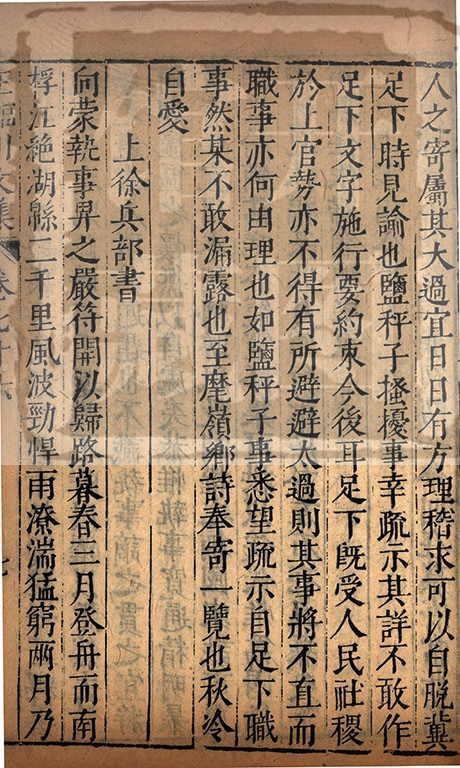 人之寄屬其大過宜日日有方理稽求可以自脫冀
足下時見諭也鹽秤子搔擾事幸疏示其詳不敢作
足下文字施行要約束今後耳足下旣受人民社稷
於上官勢亦不得有所避避太過則其事將不直而
職事亦何由理也如鹽秤子事悉望疏示自足下職
事然某不敢漏露也至庢嶺鄉詩奉寄一覽也秋冷
自愛
上徐兵部書
向蒙執事畀之嚴符開以歸路暮春三月登舟而南
桴江絶湖緜二千里風波勁悍雨潦湍猛窮兩月乃
王臨川文集 卷七十六 七